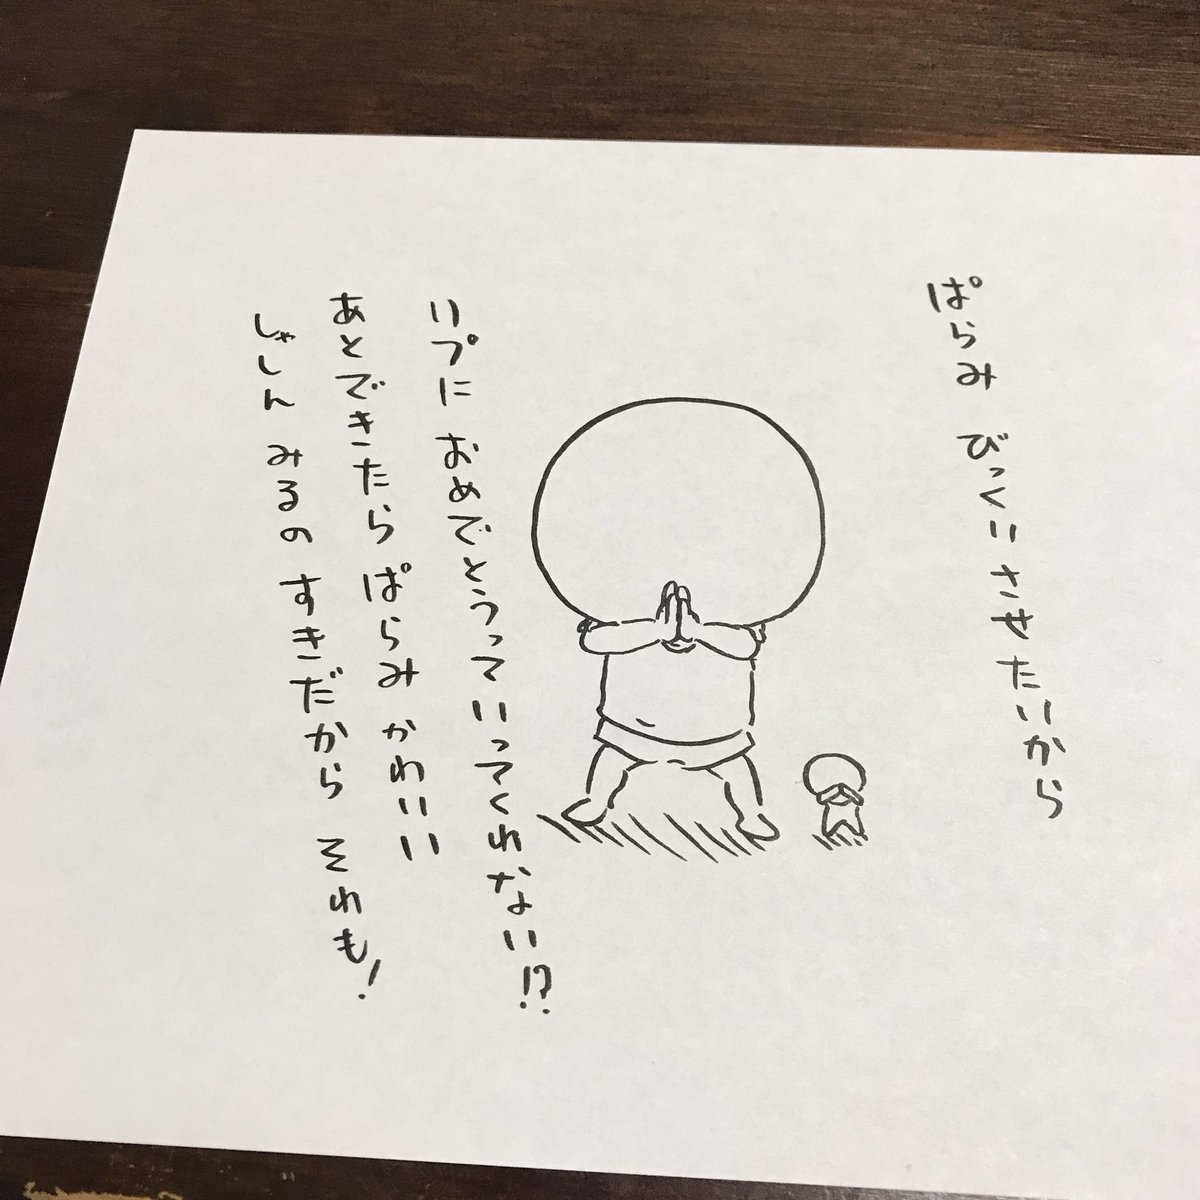 ぱらみ びっくい させたいから
いプに おめでとうって いってくれない!?
あとできたら ぱらみ かわいい
しゃしん みるの すきだから それも!